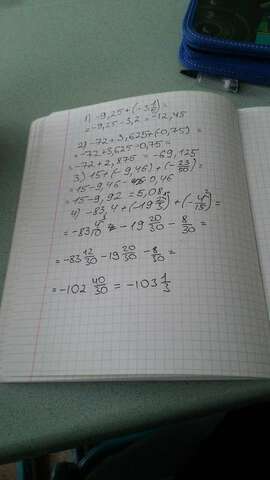 1) -9,25+(-3 1/5)=
=-9,25-3,2=-12,45
2) -72+3,625+(-0,75)=
=-72+3,625-0,75=
=-72+2,875=-69,125
3) 15+(-9,46)+(-23/50)=
=15-9,46-0,46
=15-9,92=5,08
4) -83,4+(-19 2/3)+(-4/15)=
=-83 4/10 -19 20/30 - 8/30 =
=-83 12/30 -19 20/30 - 8/30 =
=-102 40/30 = -103 1/3